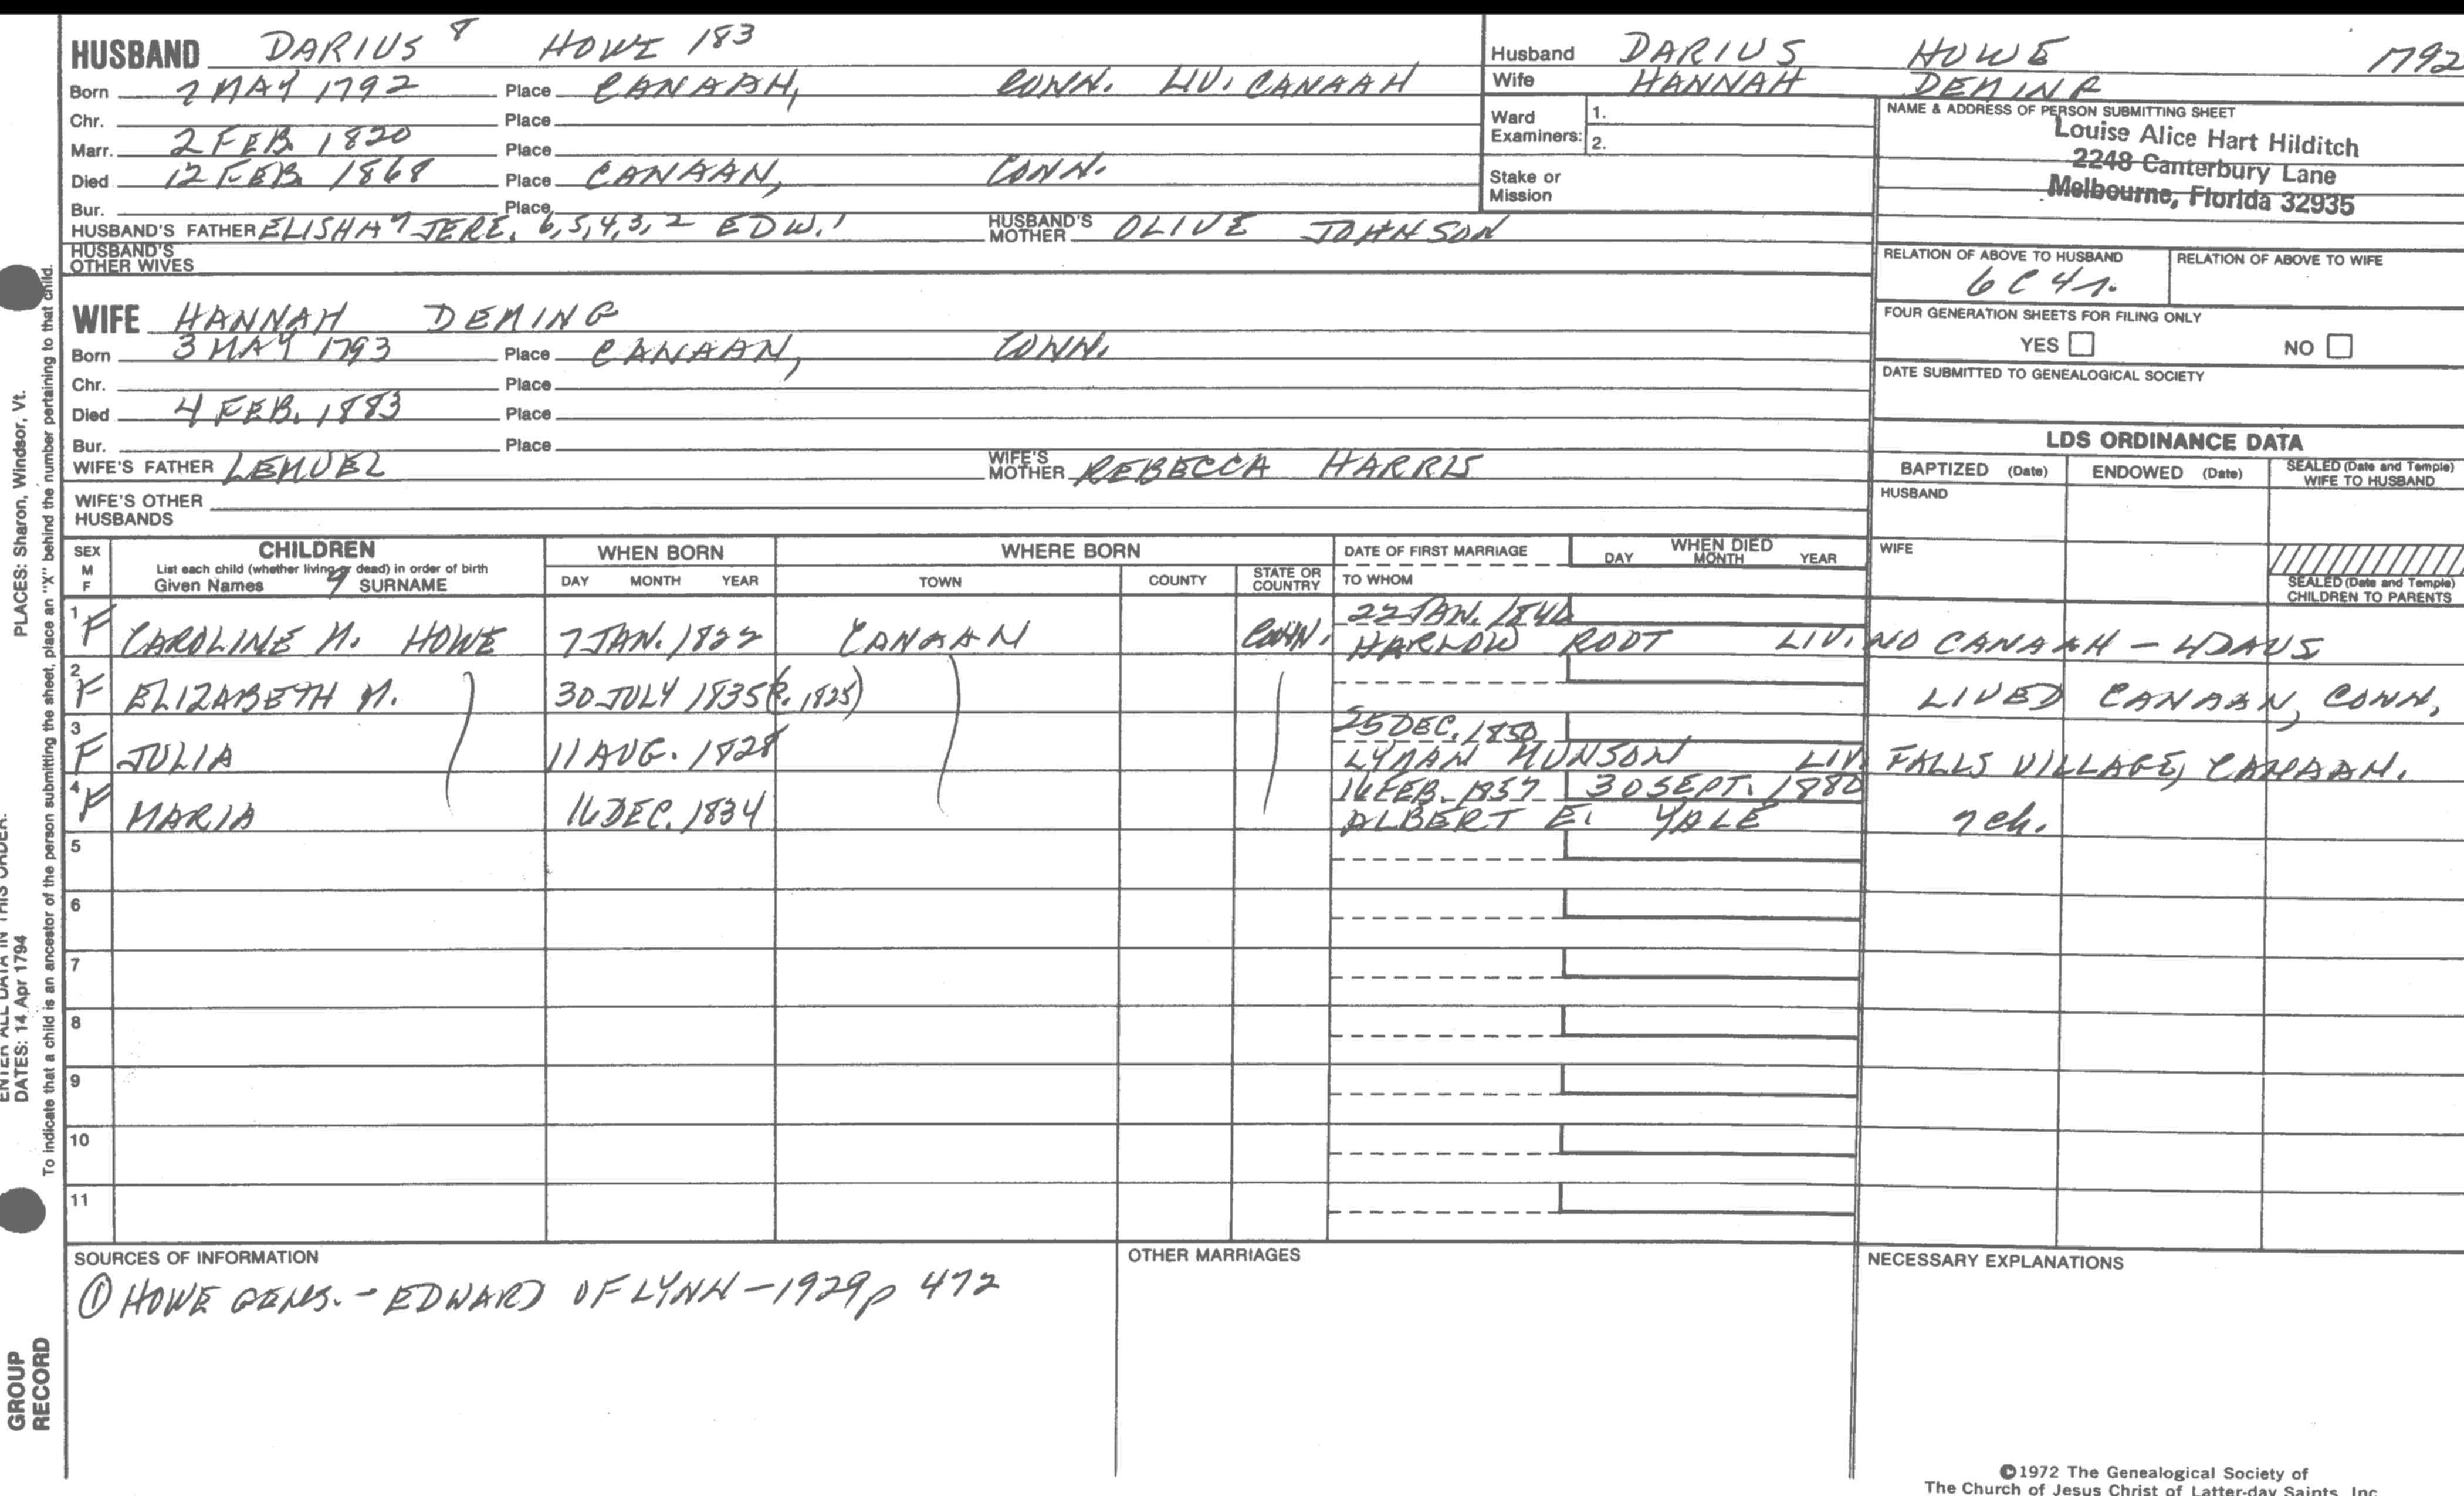 HUSBAND DARIUS 8 HOWE 183
Born 7 MAY 1792 Place CANAAN, CONN. LIV. CANAAN
Chr. Place
Marr. 2 FEB. 1820 Place
Died 12 FEB. 1868 Place CANAAN, CONN.
Bur. Place
HUSBAND'S FATHER ELISHA 7 JERE. 6,5,4,3,2 EDW. 1 HUSBAND'S MOTHER OLIVE JOHNSON
HUSBAND'S OTHER WIVES
Husband DARIUS HOWE 1792
Wife HANNAH DEMING
Ward Examiners: 1.
2.
Stake or Mission
NAME & ADDRESS OF PERSON SUBMITTING SHEET
Louise Alice Hart Hilditch
2248 Canterbury Lane
Melbourne, Florida 32935
RELATION OF ABOVE TO HUSBAND RELATION OF ABOVE TO WIFE
6C4r.
FOUR GENERATION SHEETS FOR FILING ONLY
YES NO
DATE SUBMITTED TO GENEALOGICAL SOCIETY
WIFE HANNAH DEMING
Born 3 MAY 1793 Place CANAAN, CONN.
Chr. Place
Died 4 FEB. 1883 Place
Bur. Place
WIFE'S FATHER LEMUEL WIFE'S MOTHER REBECCA HARRIS
WIFE'S OTHER HUSBANDS
LDS ORDINANCE DATA
BAPTIZED (Date) ENDOWED (Date) SEALED (Date and Temple) WIFE TO HUSBAND
HUSBAND
WIFE
SEALED (Date and Temple) CHILDREN TO PARENTS
SEX M F CHILDREN WHEN BORN WHERE BORN DATE OF FIRST MARRIAGE WHEN DIED
List each child (whether living or dead) in order of birth
Given Names 9 SURNAME DAY MONTH YEAR TOWN COUNTY STATE OR COUNTRY TO WHOM DAY MONTH YEAR
22 JAN. 1840
1 F CAROLINE M. HOWE 7 JAN. 1822 CANAAN CONN. HARLOW ROOT LIV. NO CANAAN - 4DAUS
2 F ELIZABETH M. 30 JULY 1835 (?. 1825) LIVED CANAAN, CONN,
25 DEC. 1850
3 F JULIA 11 AUG. 1828 LYMAN MUNSON LIV. FALLS VILLAGE, CANAAN.
16 FEB. 1857 30 SEPT. 1880
4 F MARIA 16 DEC. 1834 ALBERT E. YALE 7 ch.
5
6
7
8
9
10
11
SOURCES OF INFORMATION OTHER MARRIAGES NECESSARY EXPLANATIONS
① HOWE GENS. - EDWARD OF LYNN - 1929 p 472
©1972 The Genealogical Society of
The Church of Jesus Christ of Latter-day Saints, Inc
PLACES: Sharon, Windsor, Vt.
ENTER ALL DATA IN THIS ORDER:
DATES: 14 Apr 1794
To indicate that a child is an ancestor of the person submitting the sheet, place an "X" behind the number pertaining to that child.
GROUP
RECORD